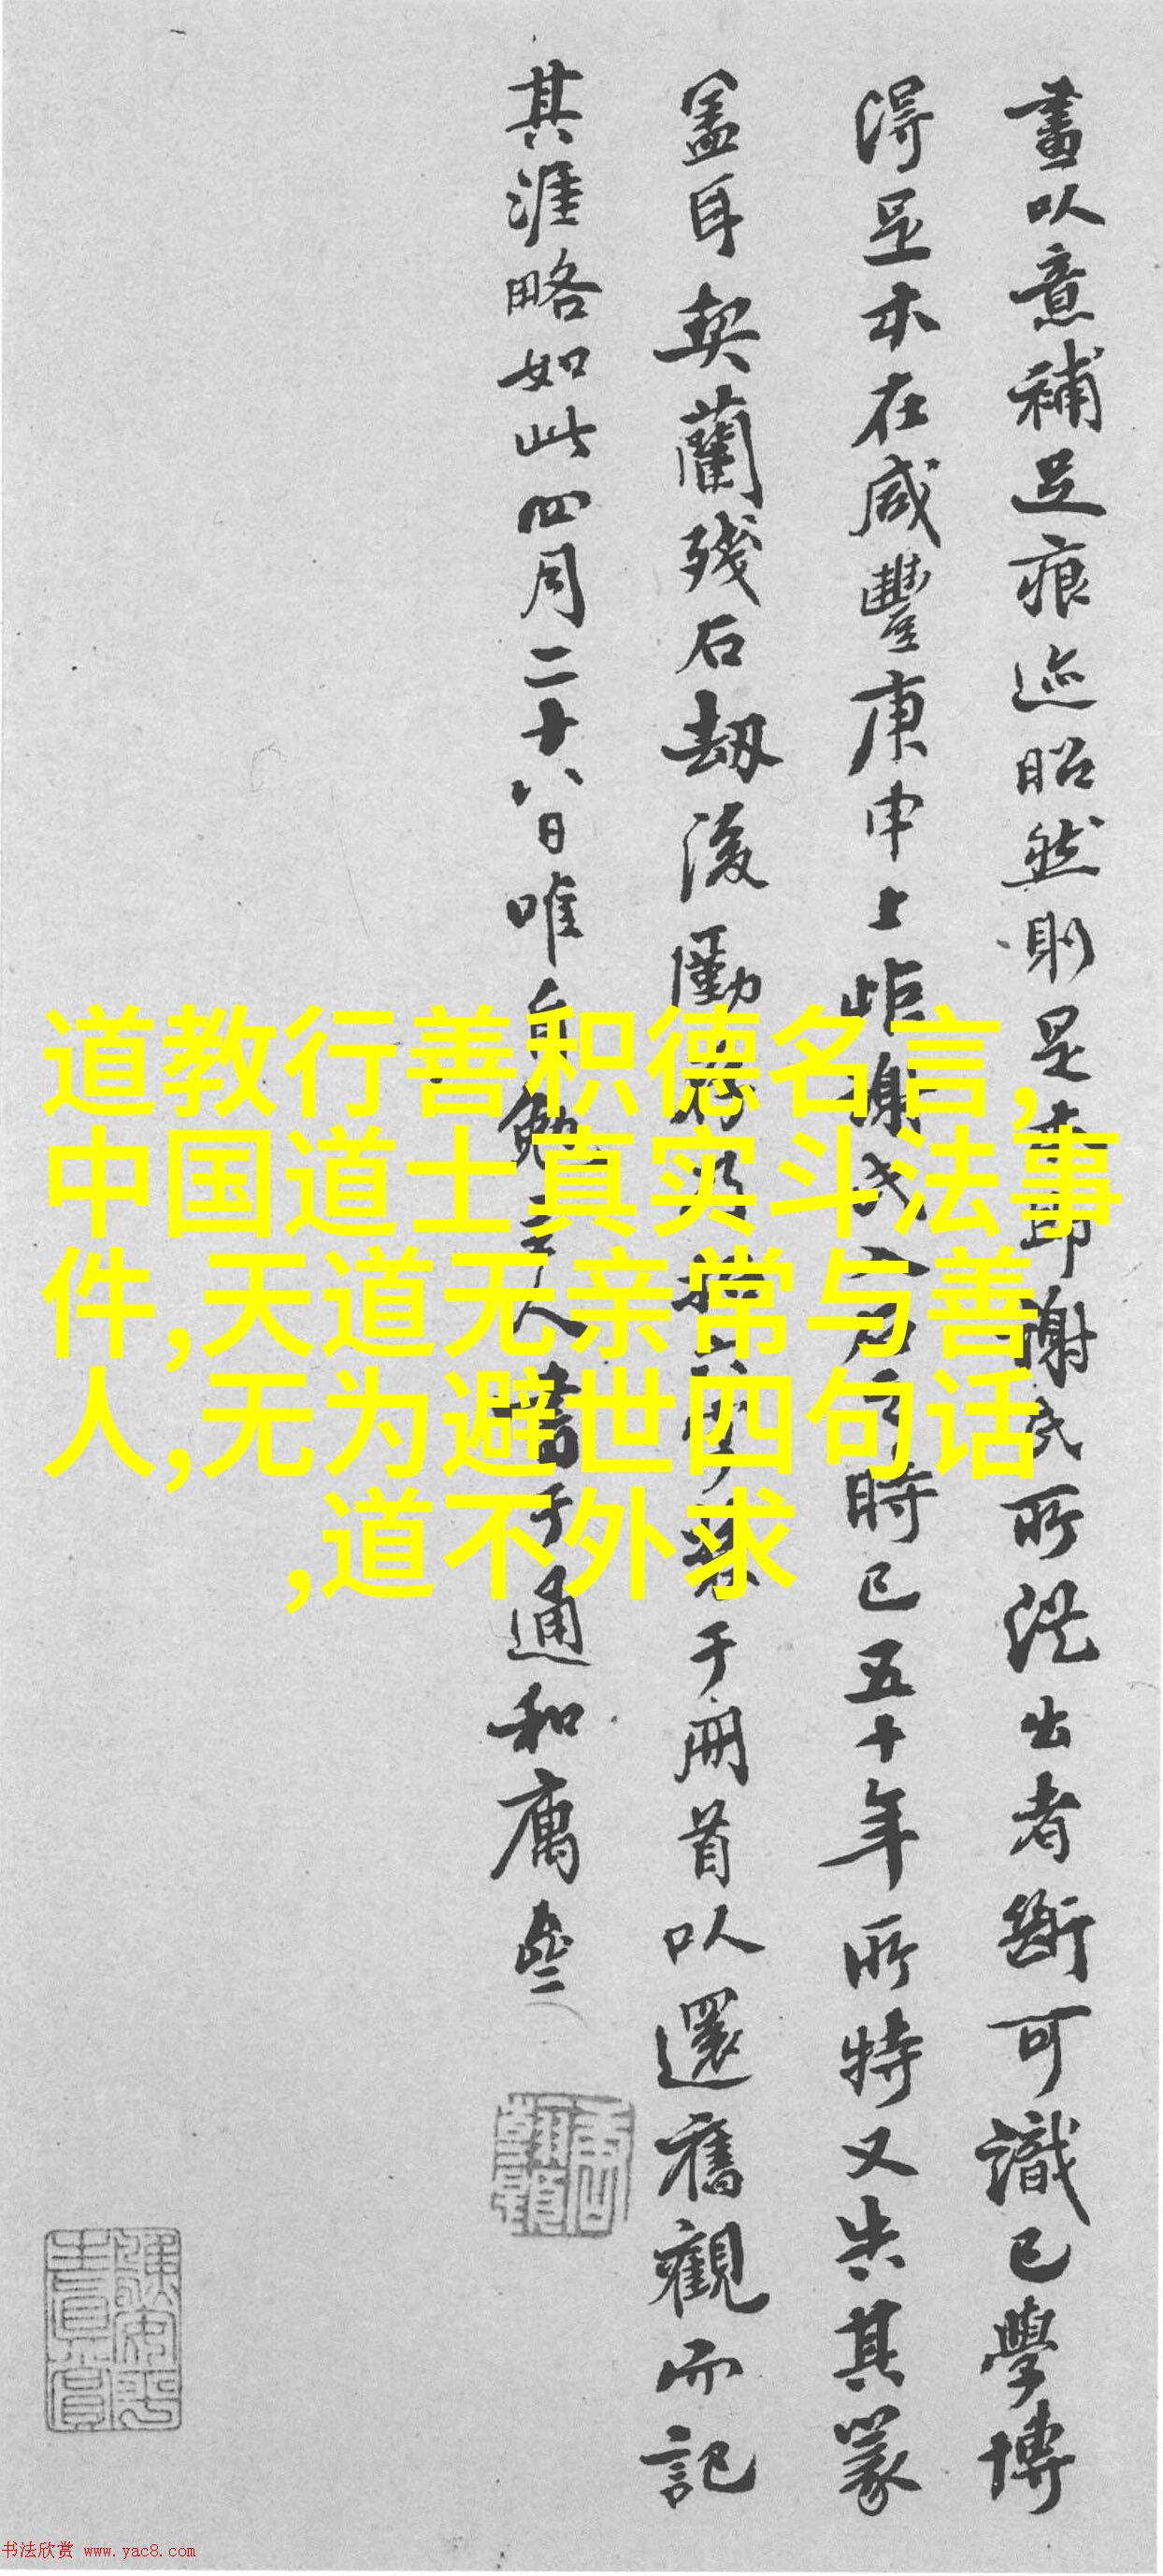 畫以意補足痕迹昭然則是本即謝氏所從出者斷可識已學博
得足本在咸豐庚申上距謝氏入石之時已五十年所特又失其篆
盖耳契蘭殘石劫後
于冊首以還舊觀而記
其涯略如此四月二十八日唯自勉主人書于通和
道教行善积德名言,
中国道士真实斗法事
件,天道无亲常与善
人,无为避世四句话
,道不外求
书法欣赏 www.yac8.com